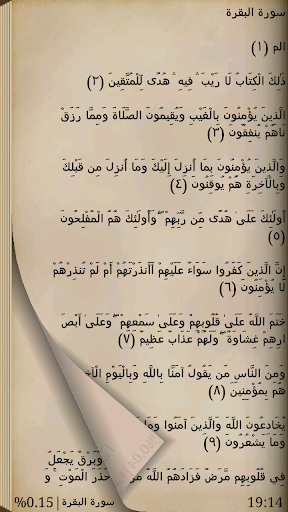 سورة البقرة
الم (١)
ذَلِكَ الْكِتَابُ لَا رَيْبَ ۛ فِيهِ ۛ هُدًى لِّلْمُتَّقِينَ (٢)
الَّذِينَ يُؤْمِنُونَ بِالْغَيْبِ وَيُقِيمُونَ الصَّلَاةَ وَمِمَّا رَزَقْ
نَاهُمْ يُنفِقُونَ (٣)
وَالَّذِينَ يُؤْمِنُونَ بِمَا أُنزِلَ إِلَيْكَ وَمَا أُنزِلَ مِن قَبْلِكَ
وَبِالْآخِرَةِ هُمْ يُوقِنُونَ (٤)
أُولَئِكَ عَلَىٰ هُدًى مِّن رَّبِّهِمْ ۖ وَأُولَئِكَ هُمُ الْمُفْلِحُونَ
(٥)
إِنَّ الَّذِينَ كَفَرُوا سَوَاءٌ عَلَيْهِمْ أَأَنذَرْتَهُمْ أَمْ لَمْ تُنذِرْهُمْ
لَا يُؤْمِنُونَ (٦)
خَتَمَ اللَّهُ عَلَىٰ قُلُوبِهِمْ وَعَلَىٰ سَمْعِهِمْ ۖ وَعَلَىٰ أَبْصَ
ارِهِمْ غِشَاوَةٌ ۖ وَلَهُمْ عَذَابٌ عَظِيمٌ (٧)
وَمِنَ النَّاسِ مَن يَقُولُ آمَنَّا بِاللَّهِ وَبِالْيَوْمِ
هُم بِمُؤْمِنِينَ (٨)
يُخَادِعُونَ اللَّهَ وَالَّذِينَ آمَنُوا
وَمَا يَشْعُرُونَ (٩)
فِي قُلُوبِهِم مَّرَضٌ فَزَادَهُمُ اللَّهُ
وَبَرْقٌ يَجْعَلُ
حَذَرَ الْمَوْتِ ۚ و
19:14
سورة البقرة | 0.15%